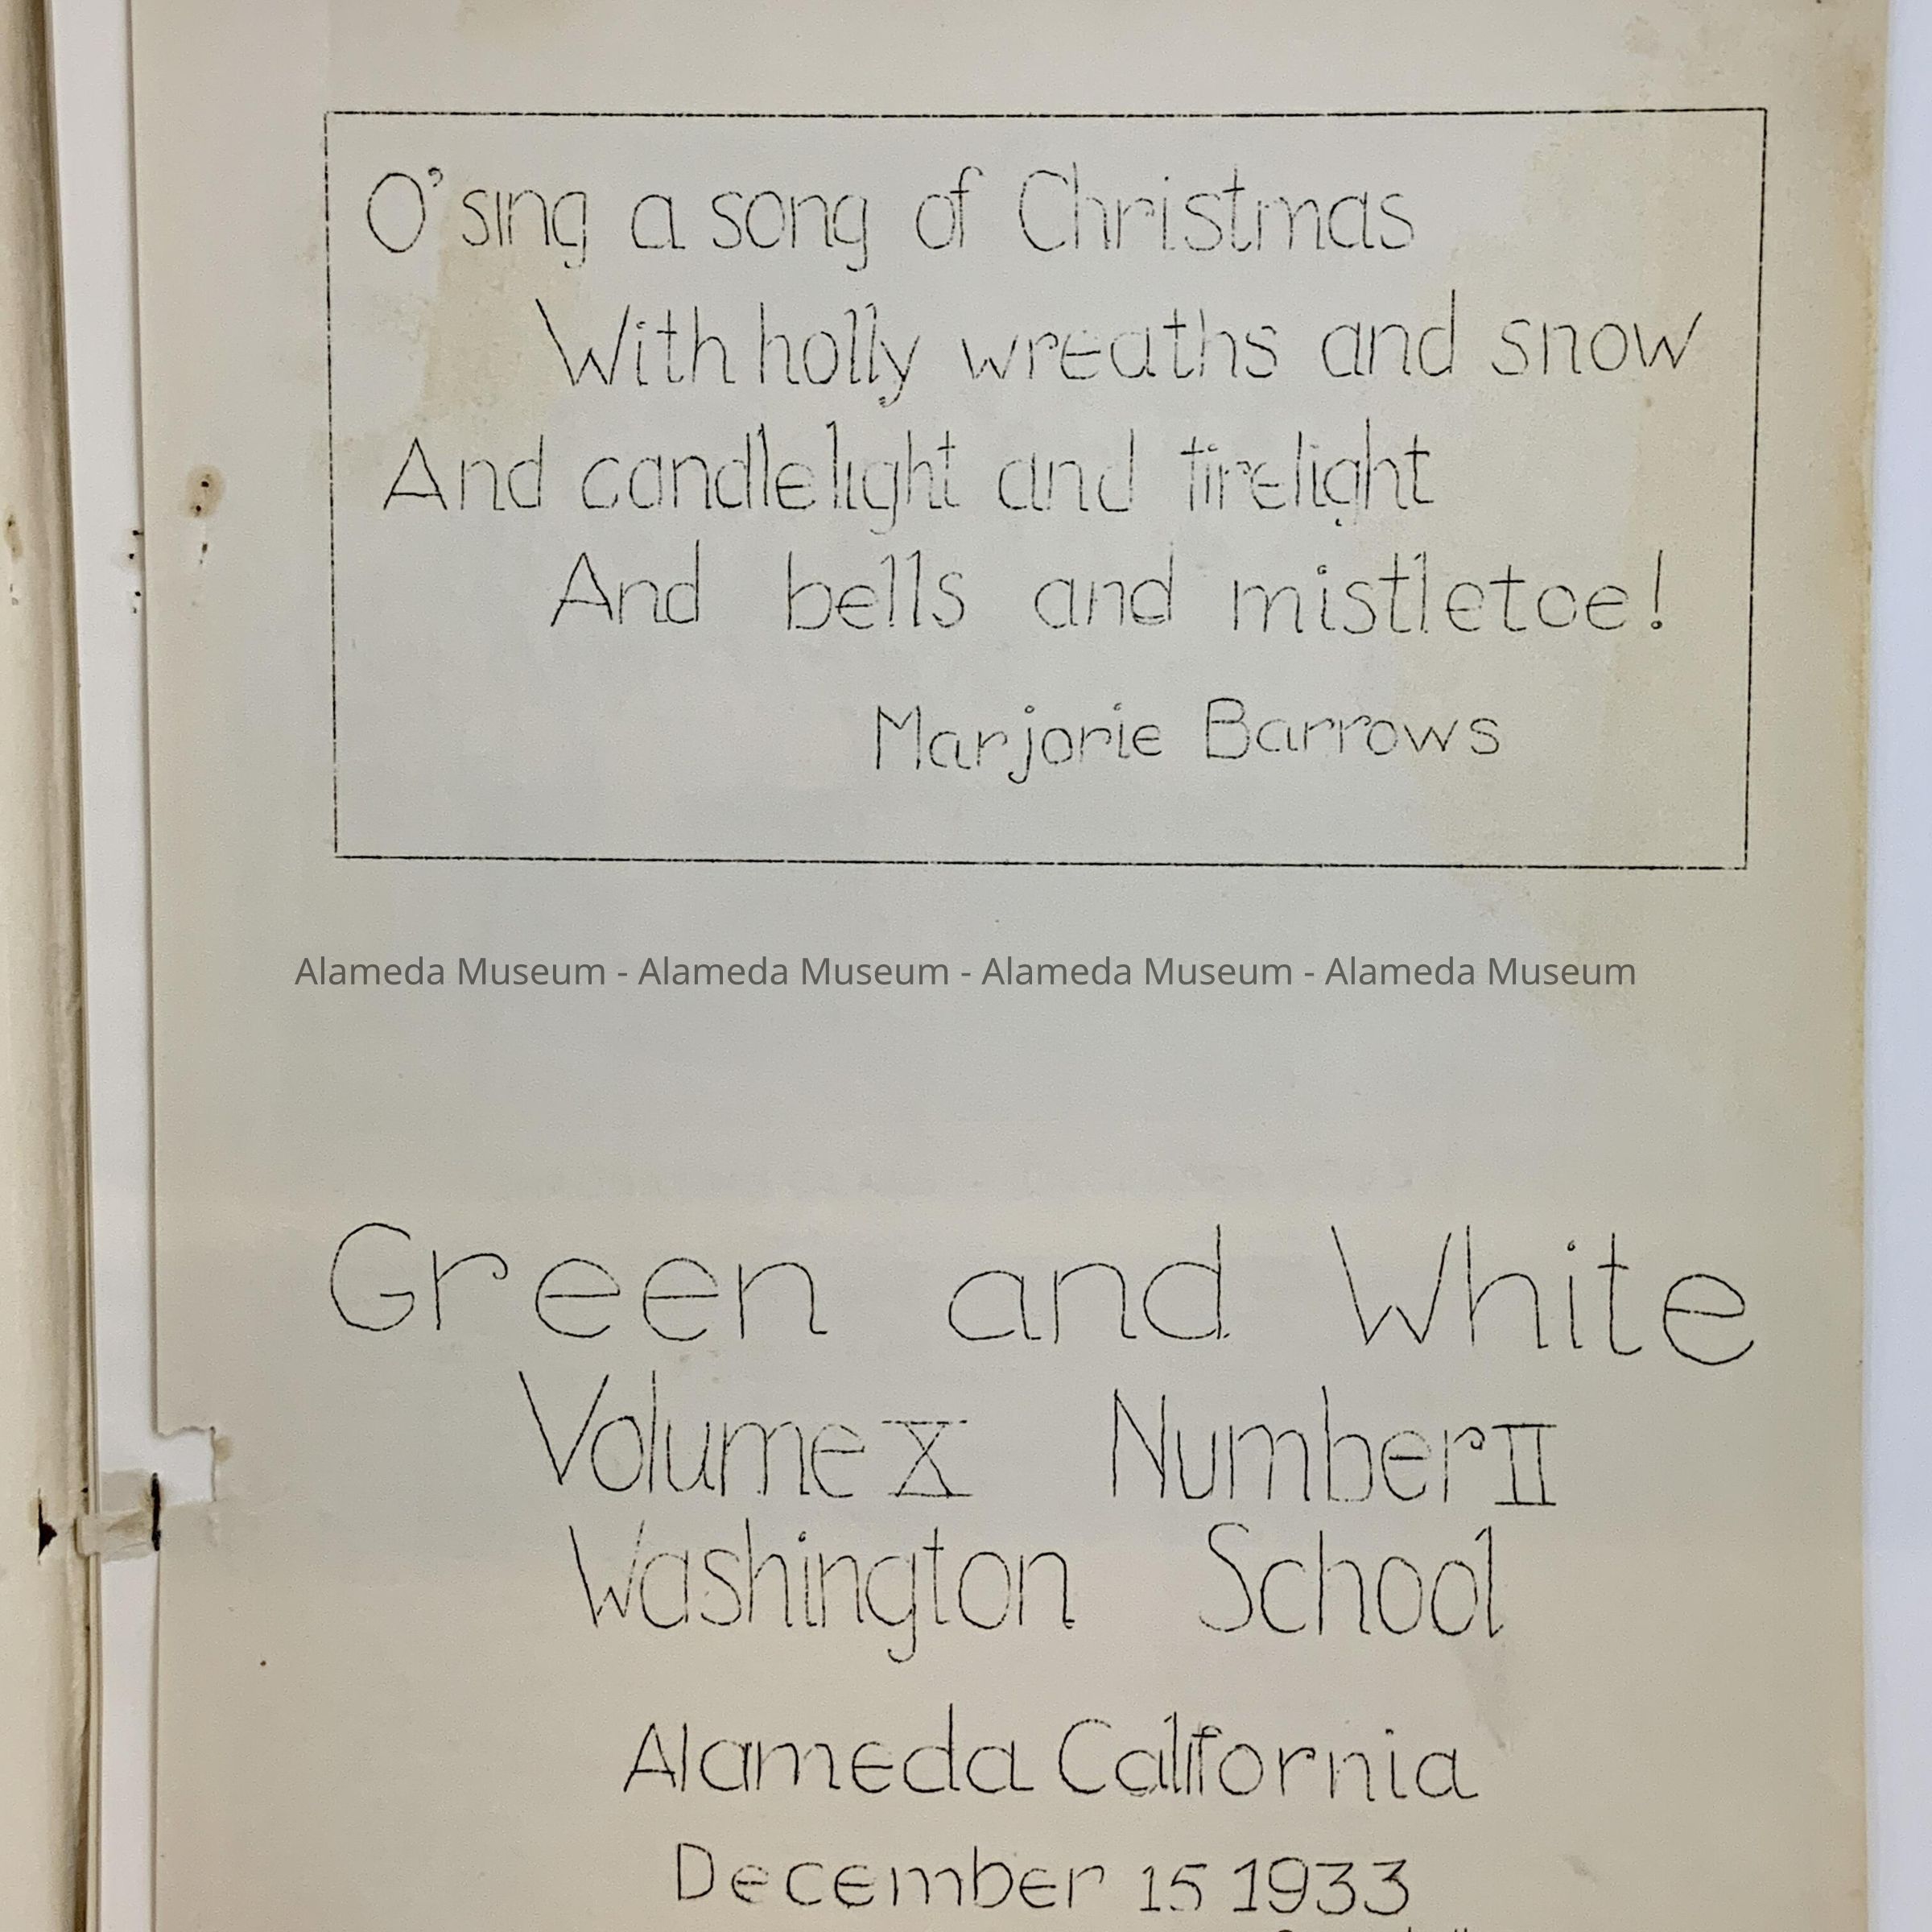 O' sing a song of Christmas
With holly wreaths and snow
And candlelight and firelight
And bells and mistletoe!
Marjorie Barrows
Alameda Museum - Alameda Museum - Alameda Museum - Alameda Museum
Green and White
Volume X Number II
Washington School
Alameda California
December 15 1933